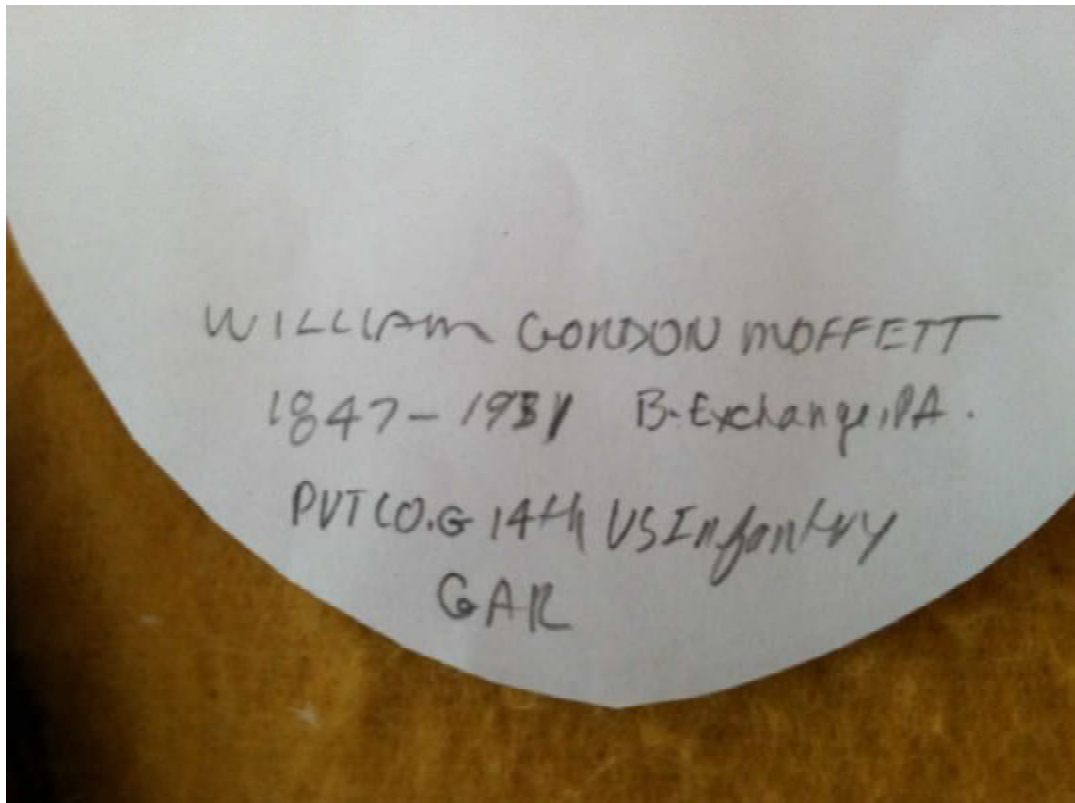 WILLIAM GORDON MOFFETT
1847-1931 B-Exchange, PA.
PVT CO.G 14th US Infantry
GAR